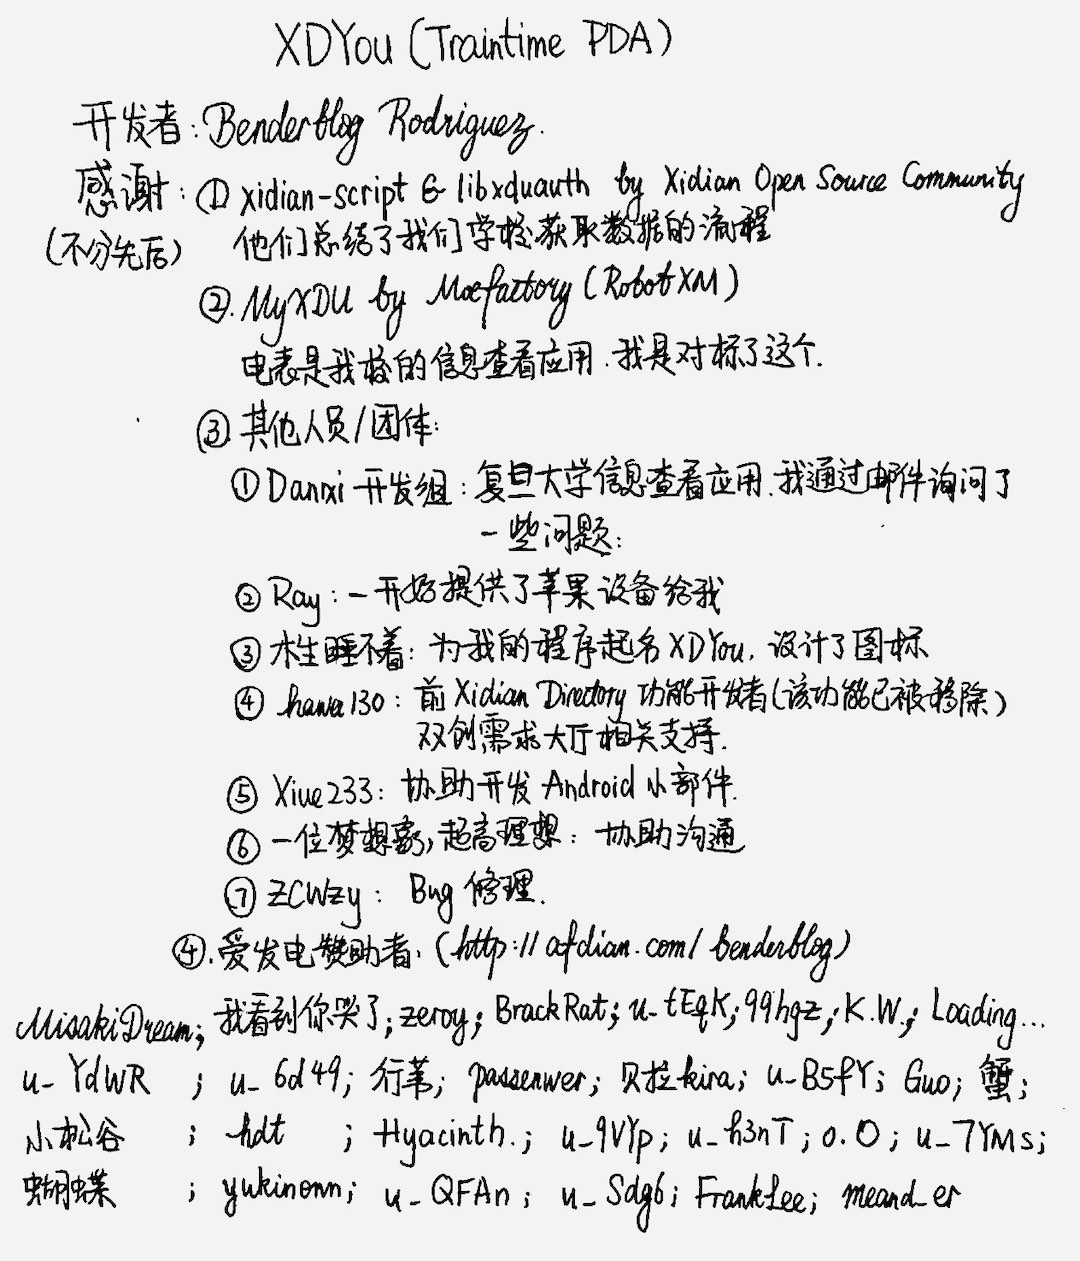 XDYou (Traintime PDA)
开发者: Benderblog Rodriguez.
感谢: ① xidian-script & libxduauth by Xidian Open Source Community
(不分先后) 他们总结了我们学校获取数据的流程
②. MyXDU by Moefactory (RobotXM)
电表是我校的信息查看应用.我是对标了这个.
③ 其他人员/团体:
① Danxi 开发组: 复旦大学信息查看应用.我通过邮件询问了
一些问题;
② Ray: 一开始提供了苹果设备给我
③ 木生睡不着: 为我的程序起名XDYou, 设计了图标
④ hawa130: 前 Xidian Directory 功能开发者(该功能已被移除)
双创需求大厅相关支持.
⑤ Xiue233: 协助开发 Android 小部件.
⑥ 一位梦想家,超高理想: 协助沟通
⑦ ZCWzy: Bug 修理.
④. 爱发电赞助者. (http://afdian.com/benderblog)
MisakiDream; 我看到你哭了; zeroy; BrackRat; u_tEqK; 99hgz; K.W.; Loading...
u_YdWR ; u_6d49; 行苇; passenwer; 贝拉kira; u_B5fY; Guo; 蟹;
小松谷 ; hdt ; Hyacinth.; u_9VYp; u_h3nT; o.O; u_7YMs;
蝴蝶 ; yukinonn; u_QFAn; u_Sdg6; FrankLee; meand_er